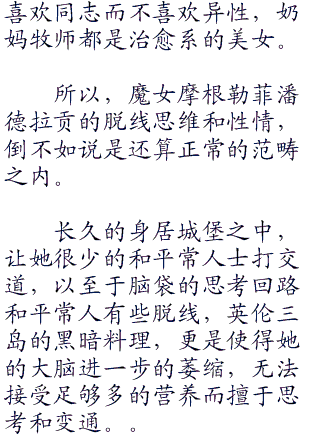 喜欢同志而不喜欢异性，奶
妈牧师都是治愈系的美女。
所以，魔女摩根勒菲潘
德拉贡的脱线思维和性情，
倒不如说是还算正常的范畴
之内。
长久的身居城堡之中，
让她很少的和平常人士打交
道，以至于脑袋的思考回路
和平常人有些脱线，英伦三
岛的黑暗料理，更是使得她
的大脑进一步的萎缩，无法
接受足够多的营养而擅于思
考和变通。。